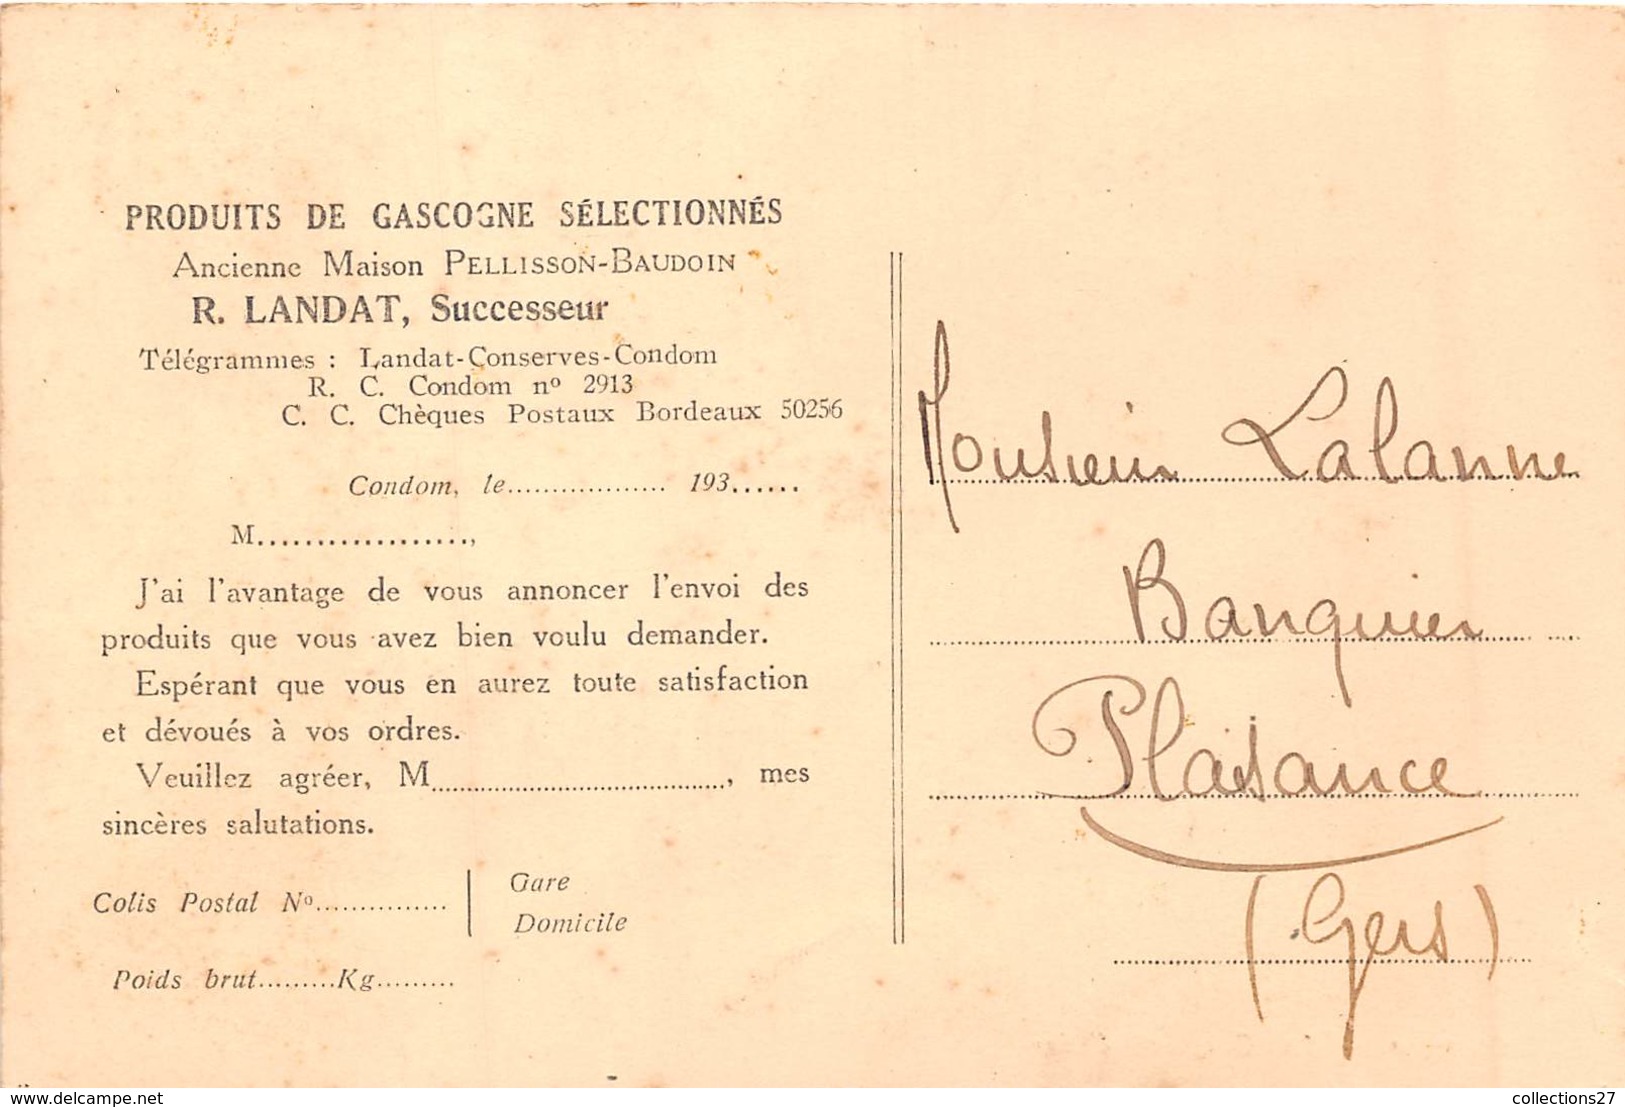 PRODUITS DE GASCOGNE SÉLECTIONNÉS
Ancienne Maison PELLISSON-BAUDOIN
R. LANDAT, Successeur
Télégrammes : Landat-Conserves-Condom
R. C. Condom nº 2913
C. C. Chèques Postaux Bordeaux 50256
Condom, le.................. 193......
M..................,
J'ai l'avantage de vous annoncer l'envoi des
produits que vous avez bien voulu demander.
Espérant que vous en aurez toute satisfaction
et dévoués à vos ordres.
Veuillez agréer, M........................................, mes
sincères salutations.
Colis Postal Nº...............
Gare
Domicile
Poids brut.........Kg.........
Monsieur Lalanne
Banquier
Plaisance
(Gers)
www.delcampe.net
collections27